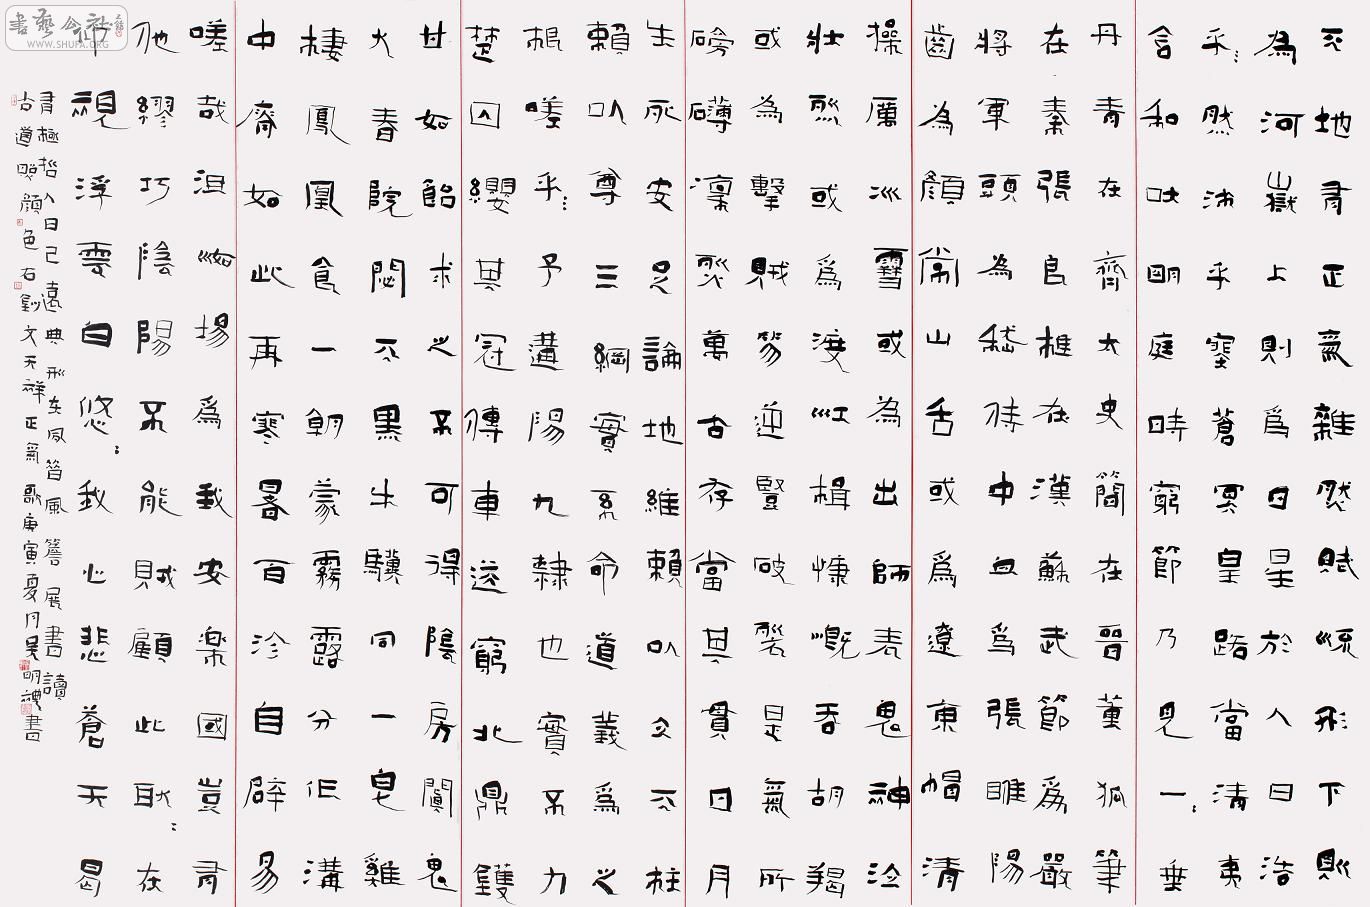 書藝公社
WWW.SHUFA.ORG
天地有正氣雜然賦流形下則
為河嶽上則為日星於人曰浩
乎：然沛乎塞蒼冥皇路當清夷
含和吐明庭時窮節乃見一：垂
丹青在齊太史簡在晉董狐筆
在秦張良椎在漢蘇武節為嚴
將軍頭為嵇侍中血為張睢陽
齒為顏常山舌或為遼東帽清
操厲冰雪或為出師表鬼神泣
壯烈或為渡江楫慷慨吞胡羯
或為擊賊笏逆豎破裂是氣所
磅礴凜烈萬古存當其貫日月
生死安足論地維賴以立天柱
賴以尊三綱實系命道義為之
根嗟乎：予遘陽九隸也實不力
楚囚纓其冠傳車送窮北鼎鑊
甘如飴求之不可得陰房闃鬼
火春院閟天黑牛驥同一皂雞
棲鳳凰食一朝蒙霧露分作溝
中瘠如此再寒暑百沴自辟易
嗟哉沮洳場為我安樂國豈有
他繆巧陰陽不能賊顧此耿：在
仰視浮雲白悠：我心悲蒼天曷
有極哲人日已遠典刑在夙昔風簷展書讀
古道照顏色右錄文天祥正氣歌庚寅夏月吳明禮書